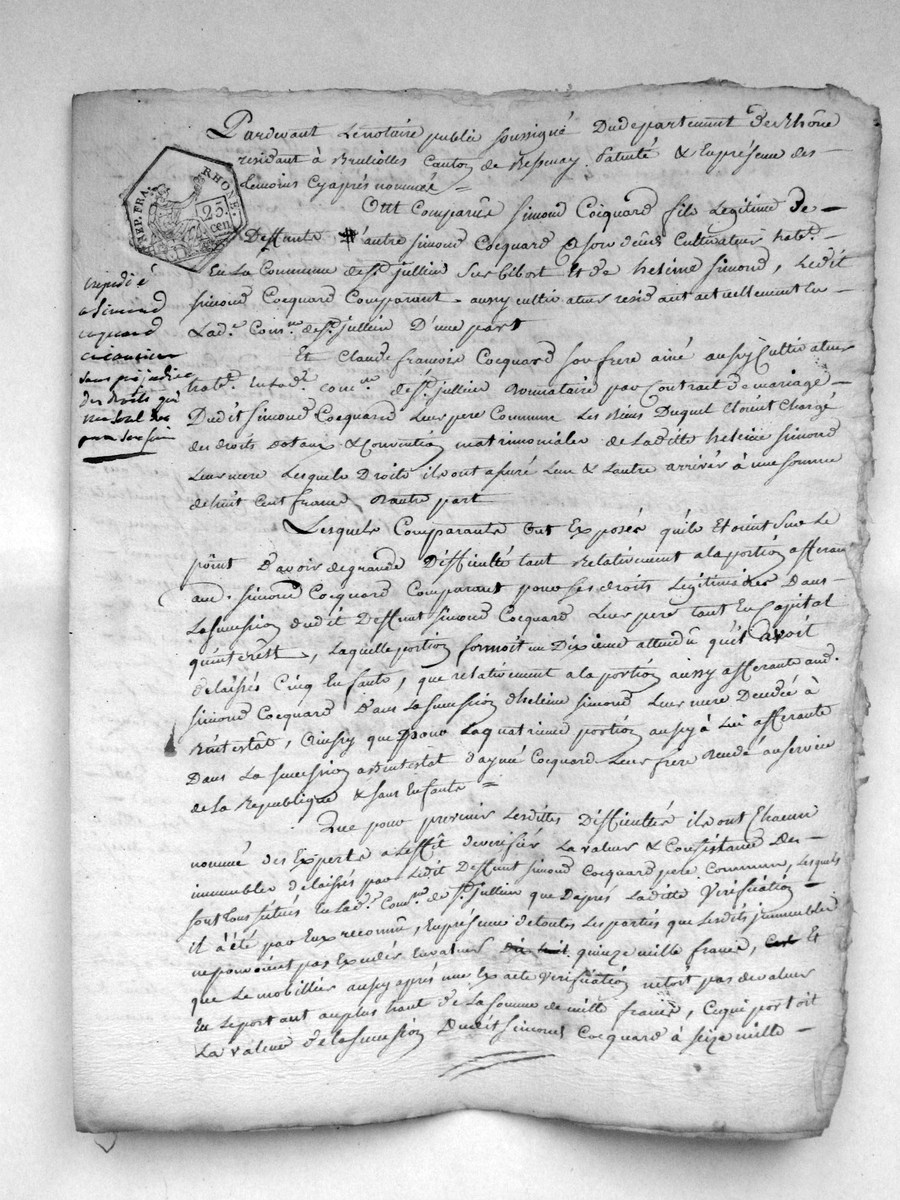 Pardevant Lenotaire public soussigné Dudepartement de Rhône
residant à Brulioles Canton de Bessenay, Patenté & Enprésence des
temoins Cyaprès nommés =
REP. FRA.
RHONE.
25.
cen
Ont Comparus Simond Cocquard fils Légitime de
Deffunts d'autre Simond Cocquard Cultivateur habt.
En La Commune de St. jullien Sur bibost Et de heleine Simond, Ledit
Simond Cocquard Comparant aussy cultivateur residant actuellement En
Lade. Comne. de St. jullien D'une part
Expedié
a Simond
coquard
sans prejudice
des droits qui
Et Claude françois Cocquard Son frere ainé aussy Cultivateur
habt. En Lade. comne. de St. jullien Donnataire par Contrat de mariage
Dudit Simond Cocquard Leur pere Commun Les Biens Duquel Etoient Chargé
des droits Dotaux & Convention matrimoniales de Laditte heleine Simond
Leur mere Lesquels Droits ils ont assuré L'un & L'autre arriver à une Somme
de huit Cent francs D'autre part
Lesquels Comparants Ont Exposés qu'ils Etoient Sur Le
point D'avoir de grande Difficultés tant Relativement a la portion afferante
aud. Simond Cocquard Comparant pour Ses droits Légitimaires Dans
La Succession dudit Deffunt Simond Cocquard Leur pere tant En Capital
qu'interest, Laquelle portion formoit un Dixieme attendu qu'il avoit
delaissés Cinq Enfants, que relativement a la portion aussy afferante aud.
Simond Cocquard Dans La Succession d'heleine Simond Leur mere Decedée à
Bintestat, Ainsy que pour La quatrieme portion aussy à Lui afferante
Dans La Succession abintestat d'aymé Cocquard Leur frere Decedé au Service
de La Republique & Sans Enfants =
Que pour prevenir Lesdittes Difficultés ils ont Chacun
nommé des Experts a L'effet de verifier La valeur & Consistance Des
immeubles délaissés par Ledit Deffunt Simond Cocquard pere Commun, Lesquels
Sont tous Situés En Lade. Comne. de St. jullien que D'aprés Laditte Verification
il à été par Eux reconnu, En présence de toutes Les parties que Lesdits jmmeubles
ne pouvoient pas Exceder La valeur quinze mille francs, Et
que Le mobillier aussy aprés une Exacte Verification n'etoit pas de valeur
En Le portant au plus haut de La Somme de mille francs, Ce qui portoit
La valeur de La Succession Dudit Simond Cocquard à Seize mille